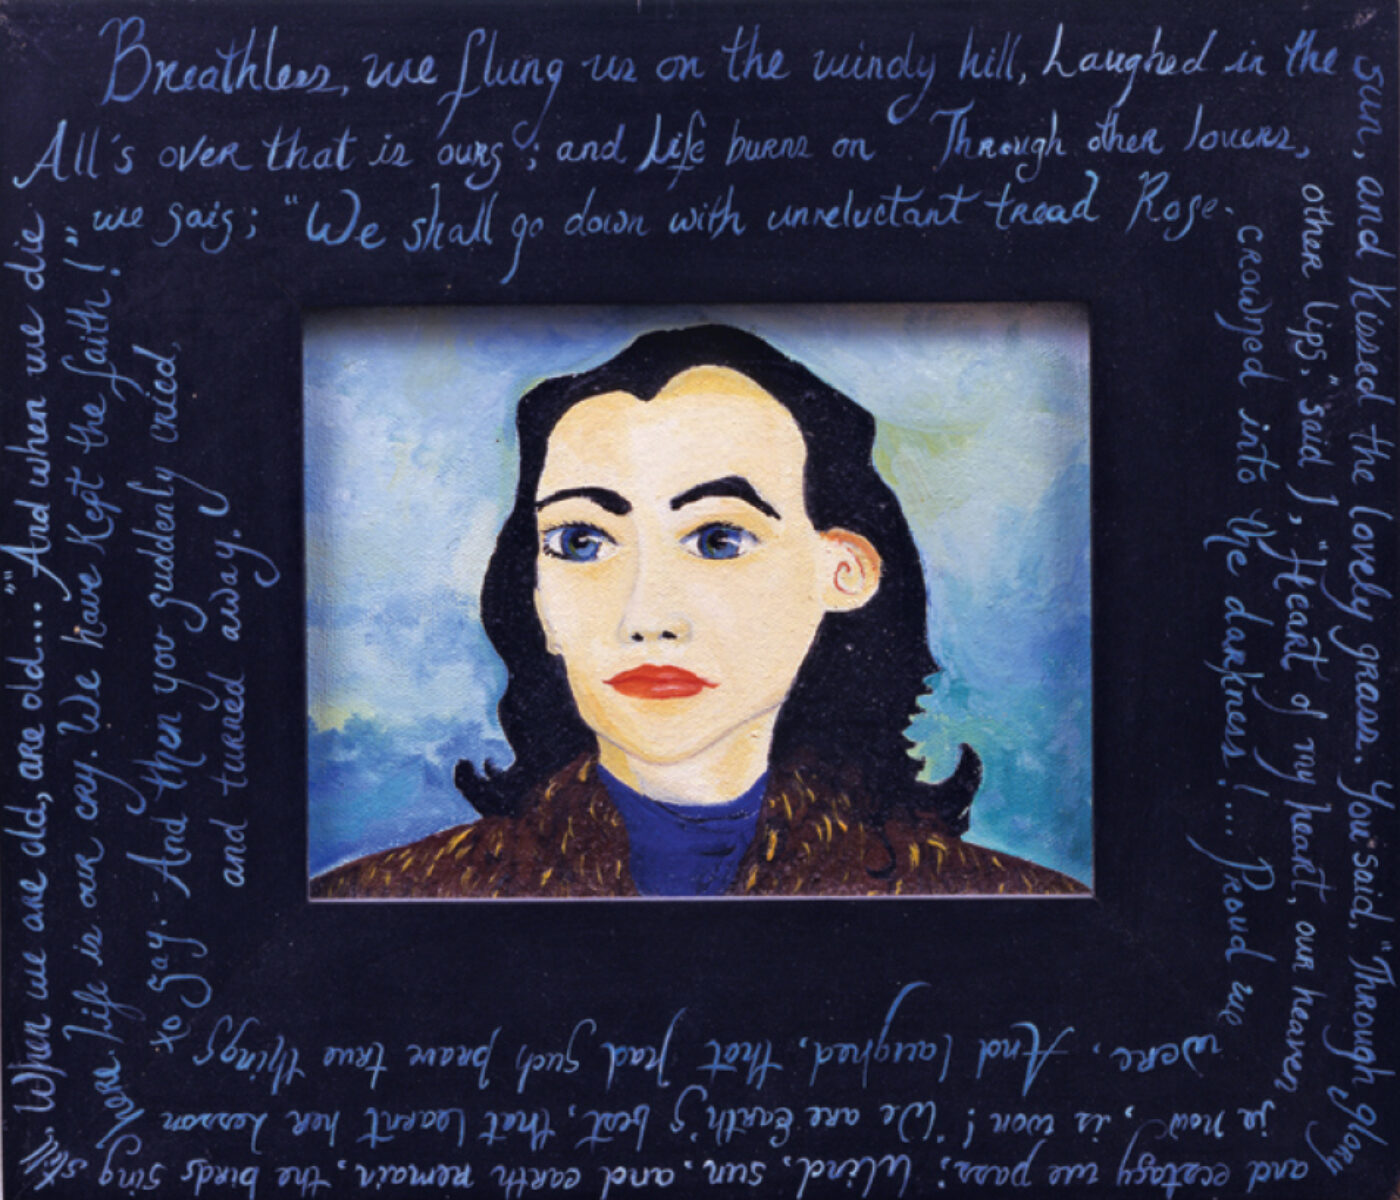 Breathless, we flung us on the windy hill, Laughed in the
sun, and kissed the lovely grass. You said, "Through glory
and ecstasy we pass; Wind, sun, and earth remain, the birds sing still,
"When we are old, are old...." And when we die
All's over that is ours; and life burns on Through other lovers,
other lips," said I, "Heart of my heart, our heaven
is now, is won! "We are Earth's best, that learnt her lesson
here. Life is our cry. We have kept the faith!"
we said; "We shall go down with unreluctant tread Rose-
crowned into the darkness!.... Proud we
were, And laughed, that had such brave true things
to say. - And then you suddenly cried,
and turned away.